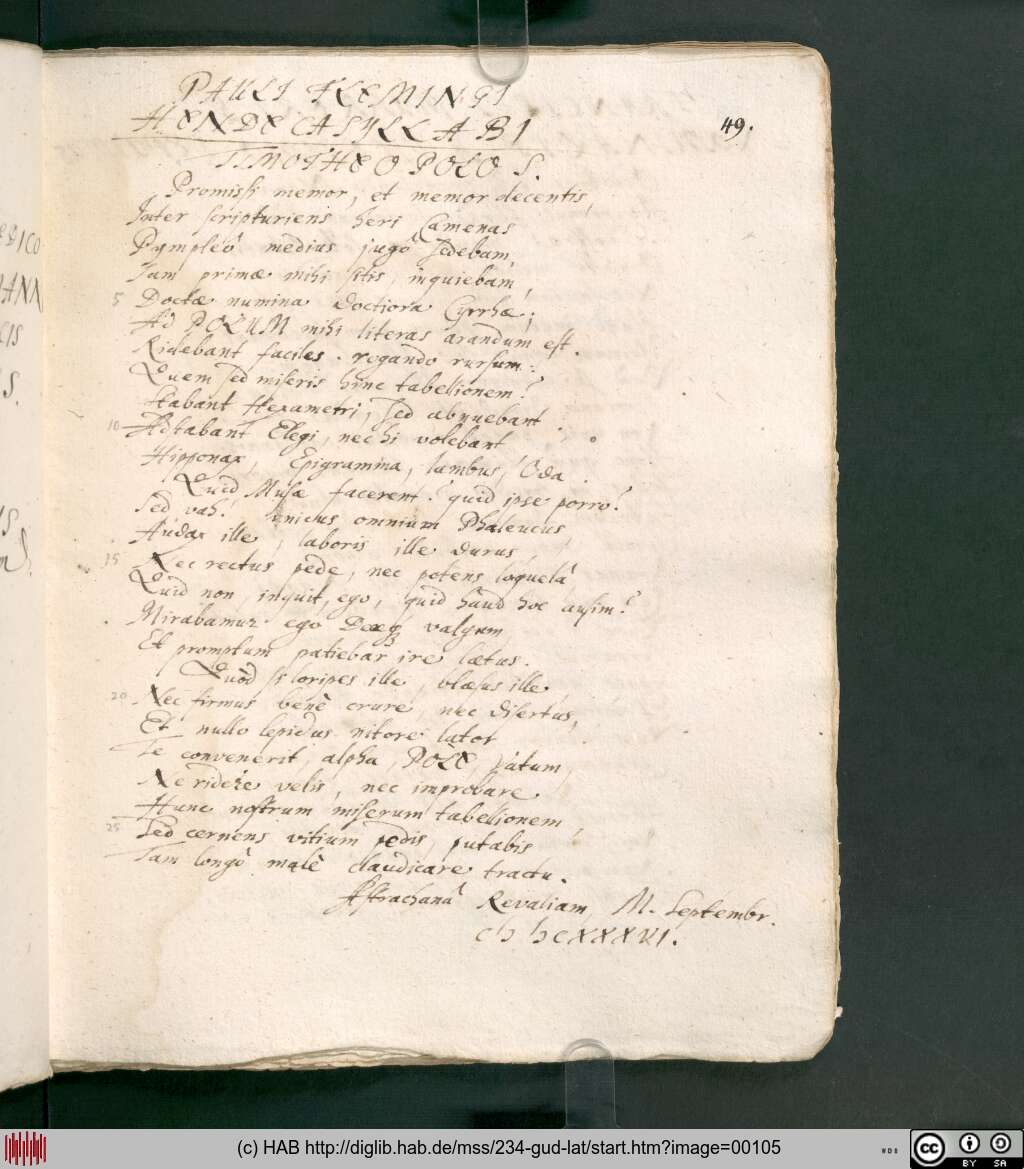 PAULI FLEMINGI
HENDECASYLLABI
49.
TIMOTHEO POLO S.
Promissi memor, et memor decentis,
Inter scripturiens heri Camenas
Pympleô medius jugô sedebam,
Jam primæ mihi sitis, inquiebam,
5 Doctæ numina doctiora Cyrrhæ;
Ad POLUM mihi literas arandum est.
Ridebant faciles. rogando rursum:
Quem sed miseris hinc tabellionem?
Stabant Hexametri, sed abnuebant.
10 Adstabant Elegi, nec hi volebant
Hipponax, Epigramma, Iambus, Oda.
Quid Musæ facerent? quid ipse porro?
Sed vah! unicus omnium Phaleucus,
Audax ille, laboris ille durus,
15 Nec rectus pede, nec potens loquelâ
Quid non, inquit, ego, quid haud hoc ausim?
Mirabamur ego Deæq; valgum
Et promptum patiebar ire lætus.
Quòd si loripes ille, blæsus ille,
20 Nec firmus benè crure, nec disertus,
Et nullo lepidus nitore lator
Te convenerit, alpha, POLE, vatum,
Ne ridere velis, nec improbare
Hunc nostrum miserum tabellionem,
25 Sed cernens vitium pedis, putabis
Tam longô malè claudicare tractu.
Astrachanâ Revaliam, M. Septembr.
cIɔ IɔcXXXVI.
ICO
ANN
CIS
S.
(c) HAB http://diglib.hab.de/mss/234-gud-lat/start.htm?image=00105
WDB
cc
BY SA